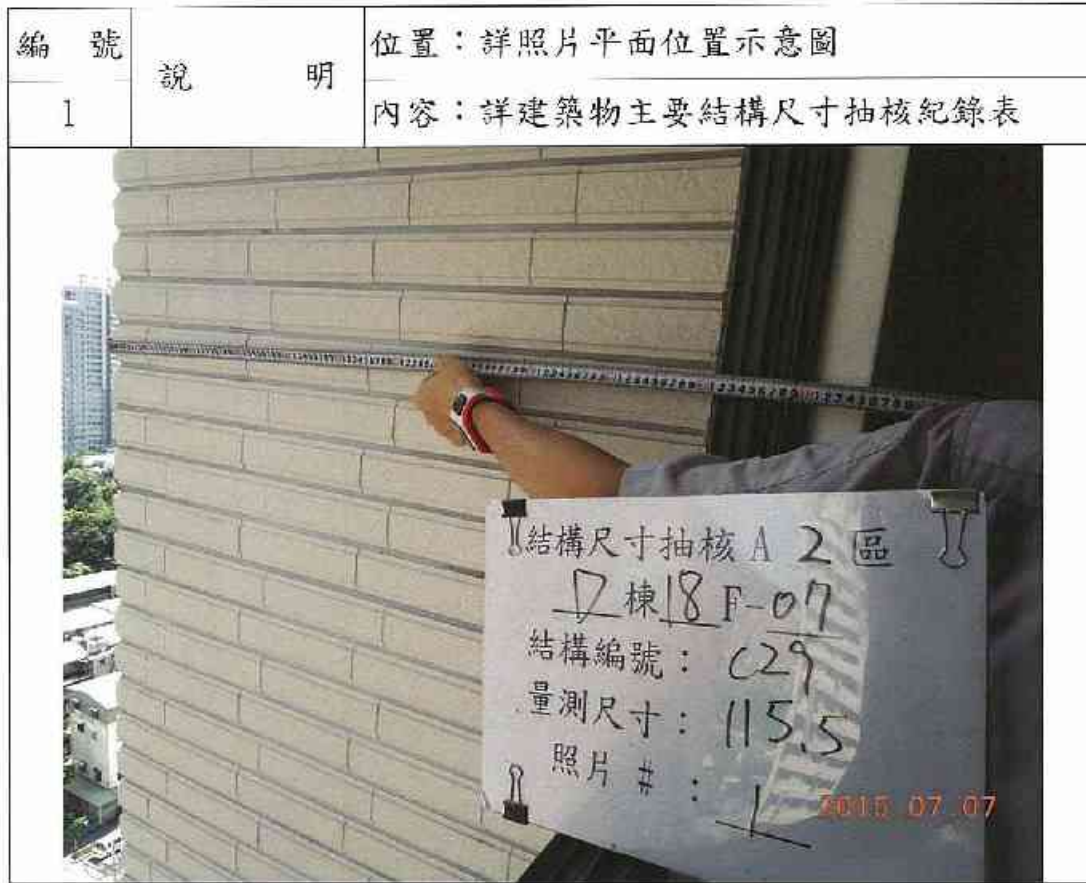 編 號
1
說 明
位置：詳照片平面位置示意圖
內容：詳建築物主要結構尺寸抽核紀錄表
結構尺寸抽核 A 2 區
D 棟 18 F-07
結構編號： C29
量測尺寸： 115.5
照片 #： 1
2015 07 07